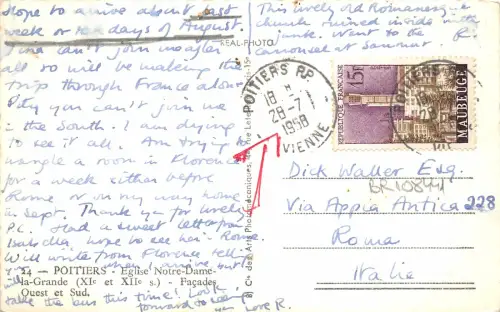 Hope to arrive about last
week or 10 days of August
Gina can't join me after
all so will be making the
trip through France alone
Pity you can't join me
in the South. I am dying
to see it all. Am trying to
wangle a room in Florence
for a week either before
Rome or on my way home
in Sept. Thank you for lovely
P.C. Had a sweet letter from
Isabella, hope to see her in Rome.
Will write from Florence tell
when arrive but
will
take the bus this time! Look
forward to seeing
you Love R.
24 — POITIERS - Eglise Notre-Dame-
la-Grande (XIe et XIIe s.) - Façades
Ouest et Sud.
This lovely old Romanesque
church ruined inside with
junk. Went to the
carousel at Saumur
R.
REAL-PHOTO
POITIERS R.P.
18 H
28-7
1958
VIENNE
REPUBLIQUE FRANÇAISE
15F
MAUBEUGE
Dick Waller Esq.
BR10844
Via Appia Antica 228
Roma
Italia